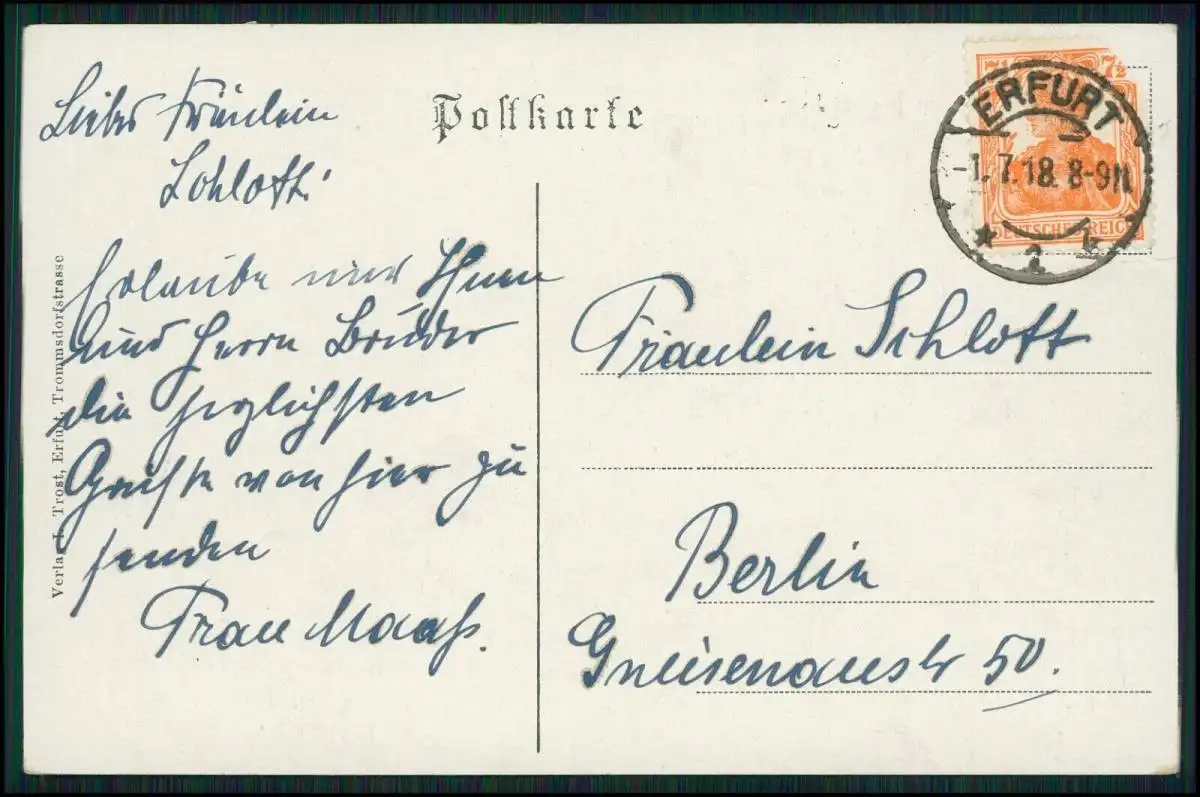 Liebes Fräulein
Schlott!
Erlaube mir Ihnen
und Herrn Bruder
die herzlichsten
Grüße von hier zu
senden
Frau Maaß.
Verlag L. Trost, Erfurt, Trommsdorfstrasse
Postkarte
7½ 7½
DEUTSCHES REICH
ERFURT
-1.7.18. 8-9N.
* 2 k
Fräulein Schlott
Berlin
Gneisenaustr 50.